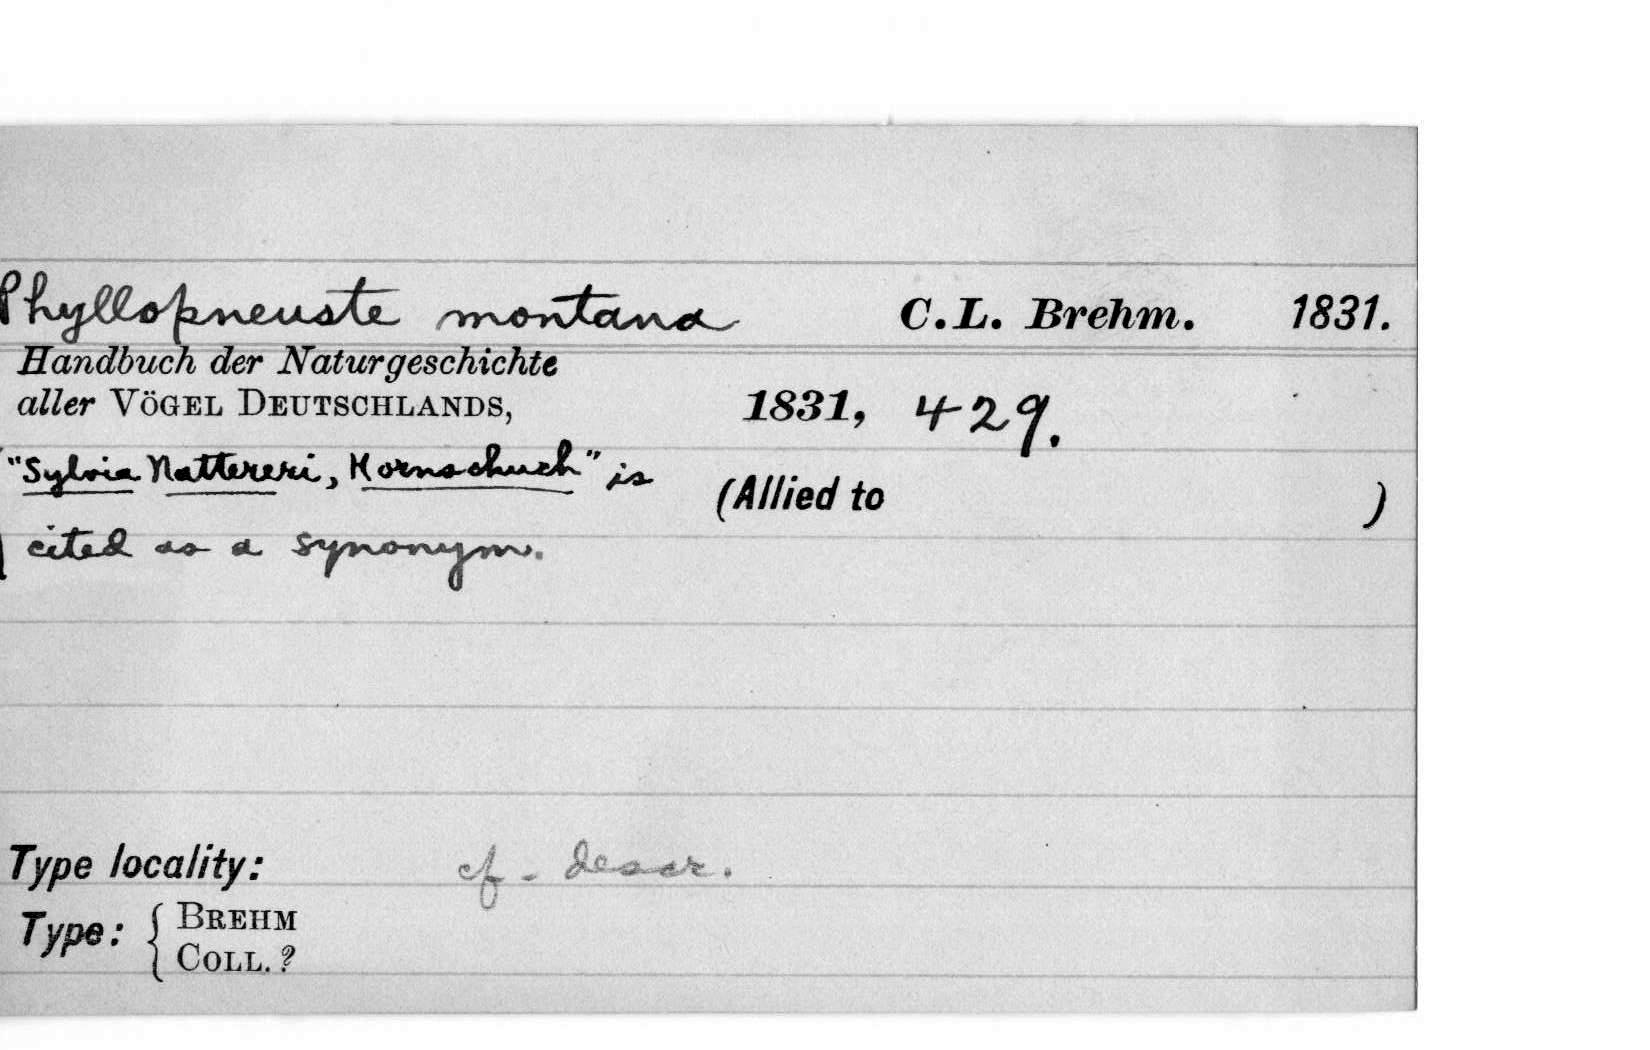 Phyllopneuste montana C.L. Brehm. 1831.
Handbuch der Naturgeschichte
aller VÖGEL DEUTSCHLANDS, 1831, 429.
"Sylvia Nattereri, Hornschuch" is (Allied to )
cited as a synonym.
Type locality: cf. descr.
Type: { BREHM
COLL. ?